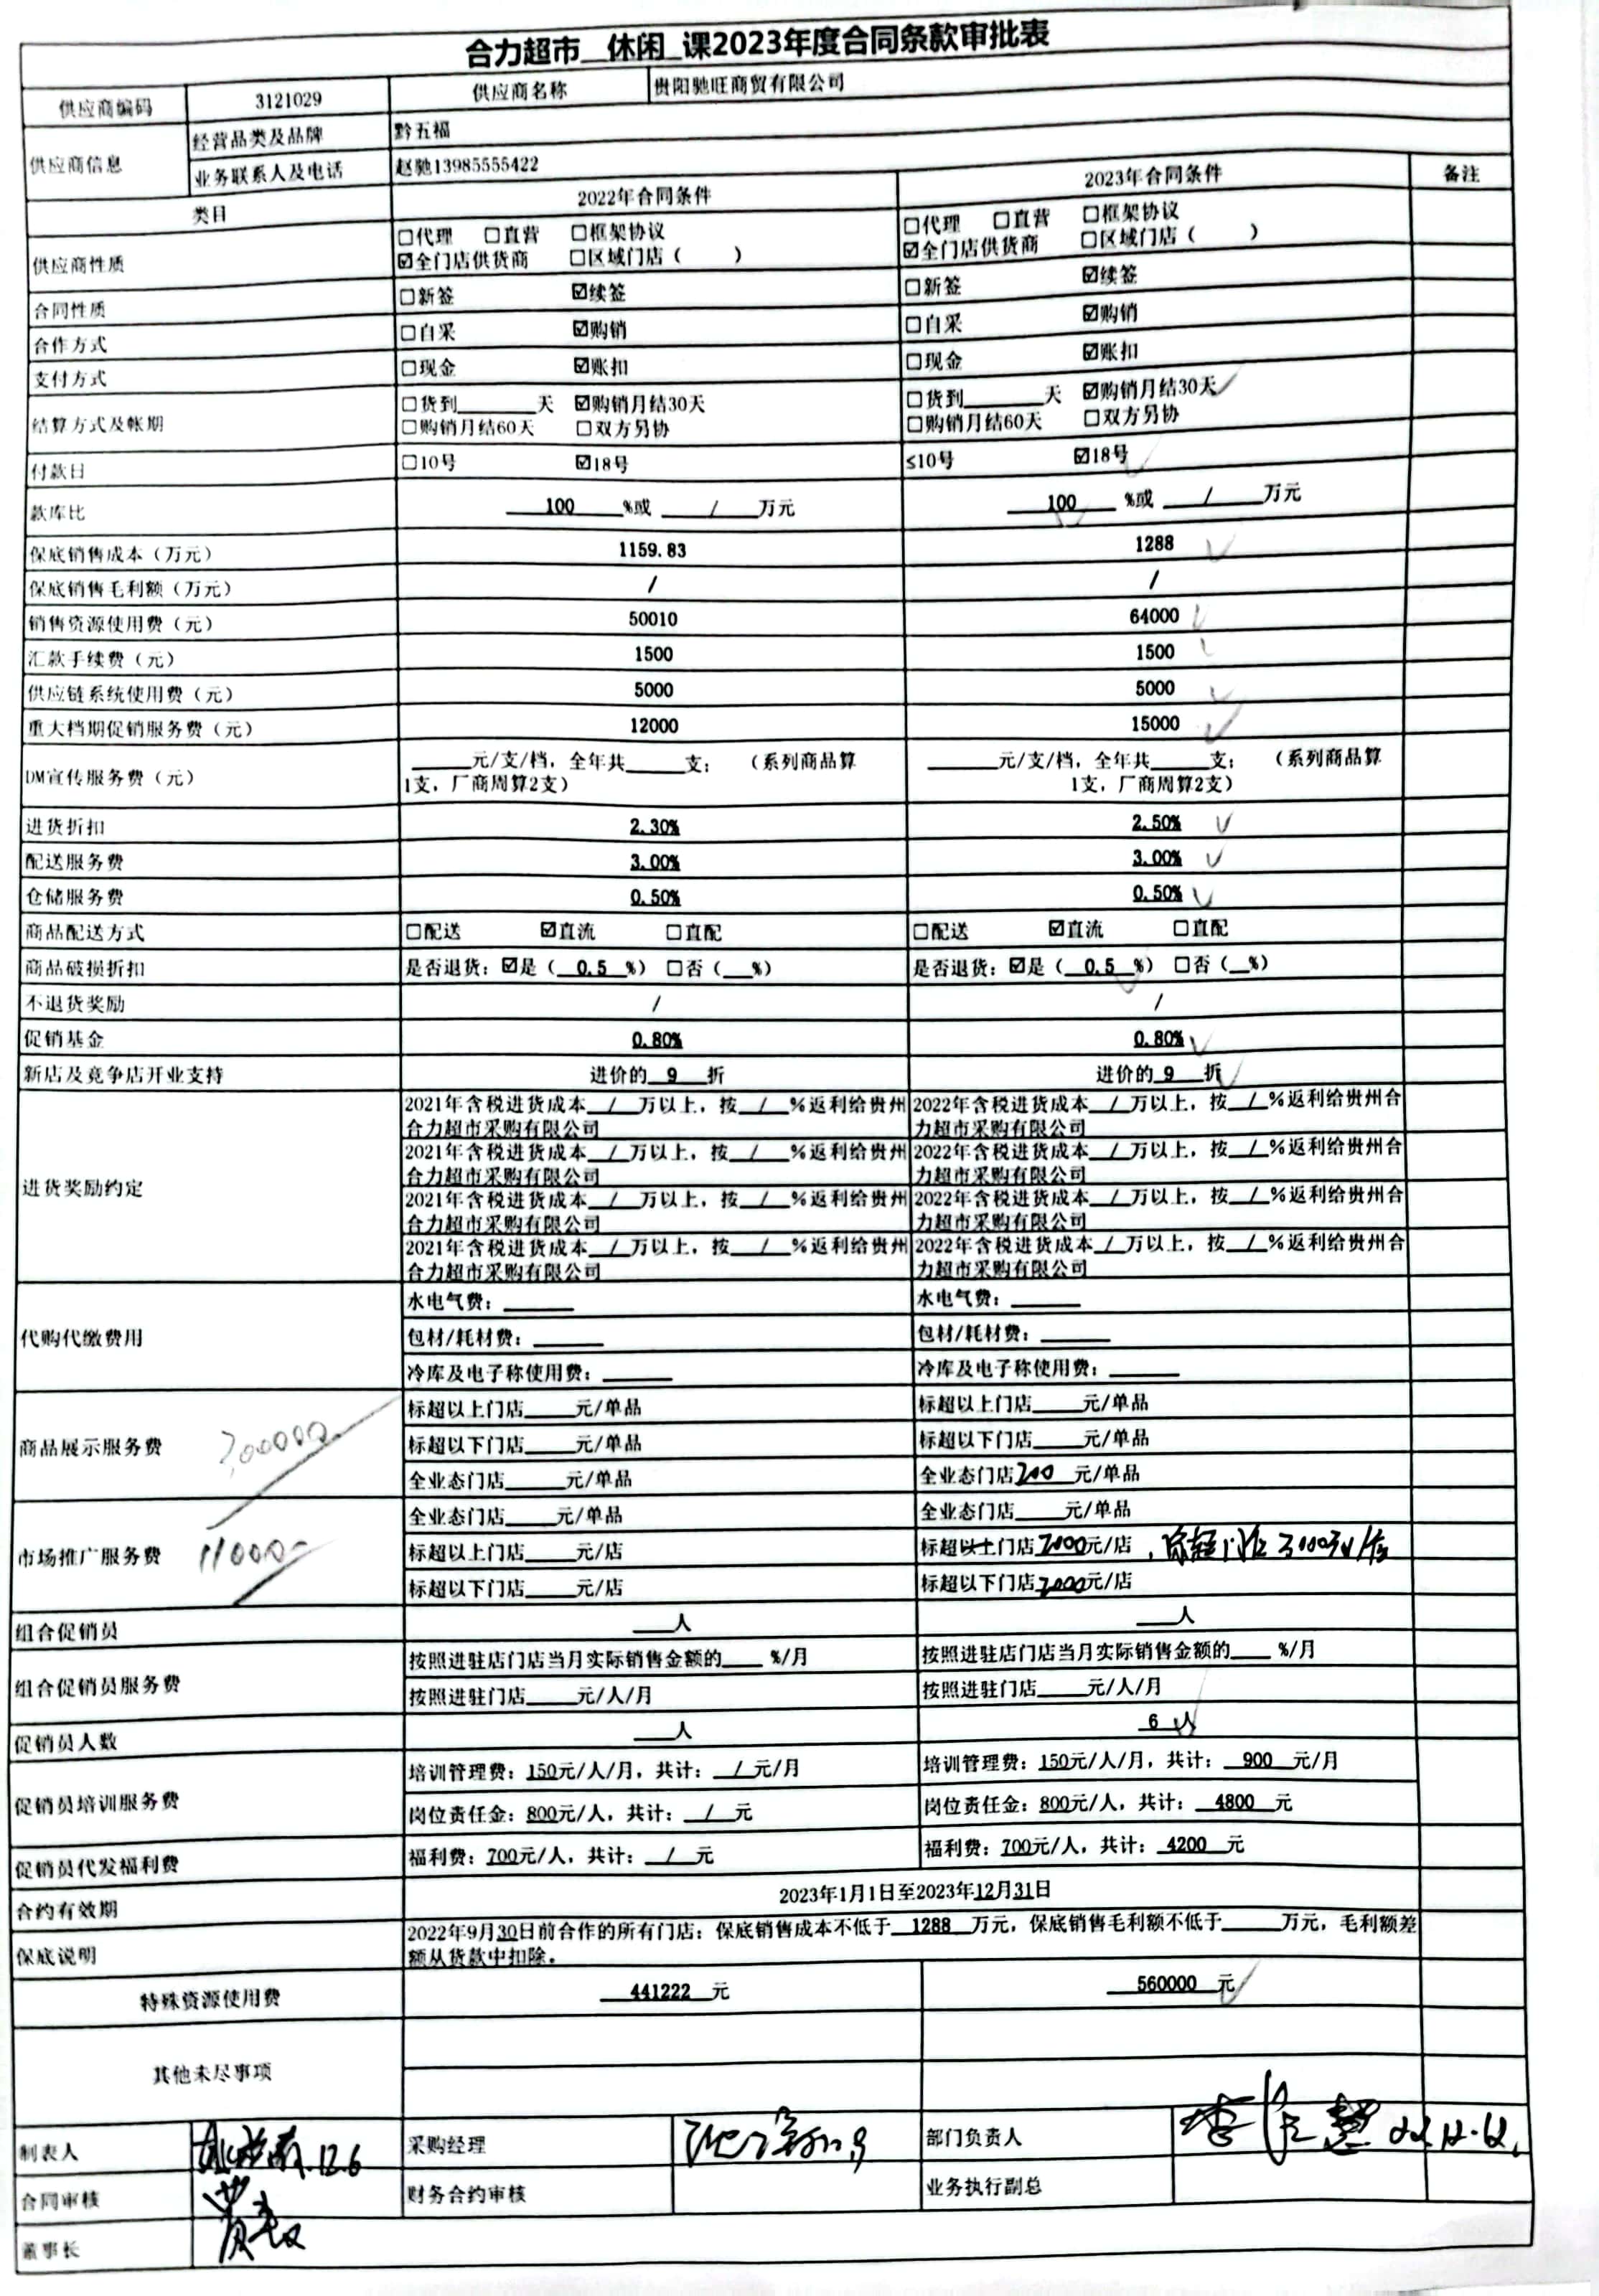 合力超市__休闲_课2023年度合同条款审批表
供应商编码 3121029 供应商名称 贵阳驰旺商贸有限公司
供应商信息 经营品类及品牌 黔五福
业务联系人及电话 赵驰13985555422
类目 2022年合同条件 2023年合同条件 备注
供应商性质 □代理 □直营 □框架协议 □代理 □直营 □框架协议
☑全门店供货商 □区域门店（ ） ☑全门店供货商 □区域门店（ ）
合同性质 □新签 ☑续签 □新签 ☑续签
合作方式 □自采 ☑购销 □自采 ☑购销
支付方式 □现金 ☑账扣 □现金 ☑账扣
结算方式及帐期 □货到______天 ☑购销月结30天 □货到______天 ☑购销月结30天 ✓
□购销月结60天 □双方另协 □购销月结60天 □双方另协
付款日 □10号 ☑18号 ≤10号 ☑18号 ✓
款库比 100 %或 / 万元 100 %或 / 万元 ✓
保底销售成本（万元） 1159.83 1288 ✓
保底销售毛利额（万元） / /
销售资源使用费（元） 50010 64000 ✓
汇款手续费（元） 1500 1500 ✓
供应链系统使用费（元） 5000 5000 ✓
重大档期促销服务费（元） 12000 15000 ✓
DM宣传服务费（元） ____元/支/档，全年共____支； （系列商品算 ____元/支/档，全年共____支； （系列商品算
1支，厂商周算2支） 1支，厂商周算2支）
进货折扣 2.30% 2.50% ✓
配送服务费 3.00% 3.00% ✓
仓储服务费 0.50% 0.50% ✓
商品配送方式 □配送 ☑直流 □直配 □配送 ☑直流 □直配
商品破损折扣 是否退货：☑是（ 0.5 %） □否（__%） 是否退货：☑是（ 0.5 %） □否（__%） ✓
不退货奖励 / /
促销基金 0.80% 0.80% ✓
新店及竞争店开业支持 进价的 9 折 进价的 9 折 ✓
进货奖励约定 2021年含税进货成本 / 万以上，按 / %返利给贵州 2022年含税进货成本 / 万以上，按 / %返利给贵州合
合力超市采购有限公司 力超市采购有限公司
2021年含税进货成本 / 万以上，按 / %返利给贵州 2022年含税进货成本 / 万以上，按 / %返利给贵州合
合力超市采购有限公司 力超市采购有限公司
2021年含税进货成本 / 万以上，按 / %返利给贵州 2022年含税进货成本 / 万以上，按 / %返利给贵州合
合力超市采购有限公司 力超市采购有限公司
2021年含税进货成本 / 万以上，按 / %返利给贵州 2022年含税进货成本 / 万以上，按 / %返利给贵州合
合力超市采购有限公司 力超市采购有限公司
代购代缴费用 水电气费：____ 水电气费：____
包材/耗材费：____ 包材/耗材费：____
冷库及电子称使用费：____ 冷库及电子称使用费：____
商品展示服务费 标超以上门店____元/单品 标超以上门店____元/单品
标超以下门店____元/单品 标超以下门店____元/单品
全业态门店____元/单品 全业态门店200元/单品
市场推广服务费 全业态门店____元/单品 全业态门店____元/单品
标超以上门店____元/店 标超以上门店2000元/店，标超门店3000元/店
标超以下门店____元/店 标超以下门店2000元/店
组合促销员 ____人 ____人
组合促销员服务费 按照进驻店门店当月实际销售金额的____ %/月 按照进驻店门店当月实际销售金额的____ %/月
按照进驻门店____元/人/月 按照进驻门店____元/人/月
促销员人数 ____人 6 人 ✓
促销员培训服务费 培训管理费：150元/人/月，共计： / 元/月 培训管理费：150元/人/月，共计： 900 元/月
岗位责任金：800元/人，共计： / 元 岗位责任金：800元/人，共计： 4800 元
促销员代发福利费 福利费：700元/人，共计： / 元 福利费：700元/人，共计： 4200 元
合约有效期 2023年1月1日至2023年12月31日
保底说明 2022年9月30日前合作的所有门店：保底销售成本不低于 1288 万元，保底销售毛利额不低于____万元，毛利额差
额从货款中扣除。
特殊资源使用费 441222 元 560000 元 ✓
其他未尽事项
制表人 12.6 采购经理 部门负责人
合同审核 财务合约审核 业务执行副总
董事长